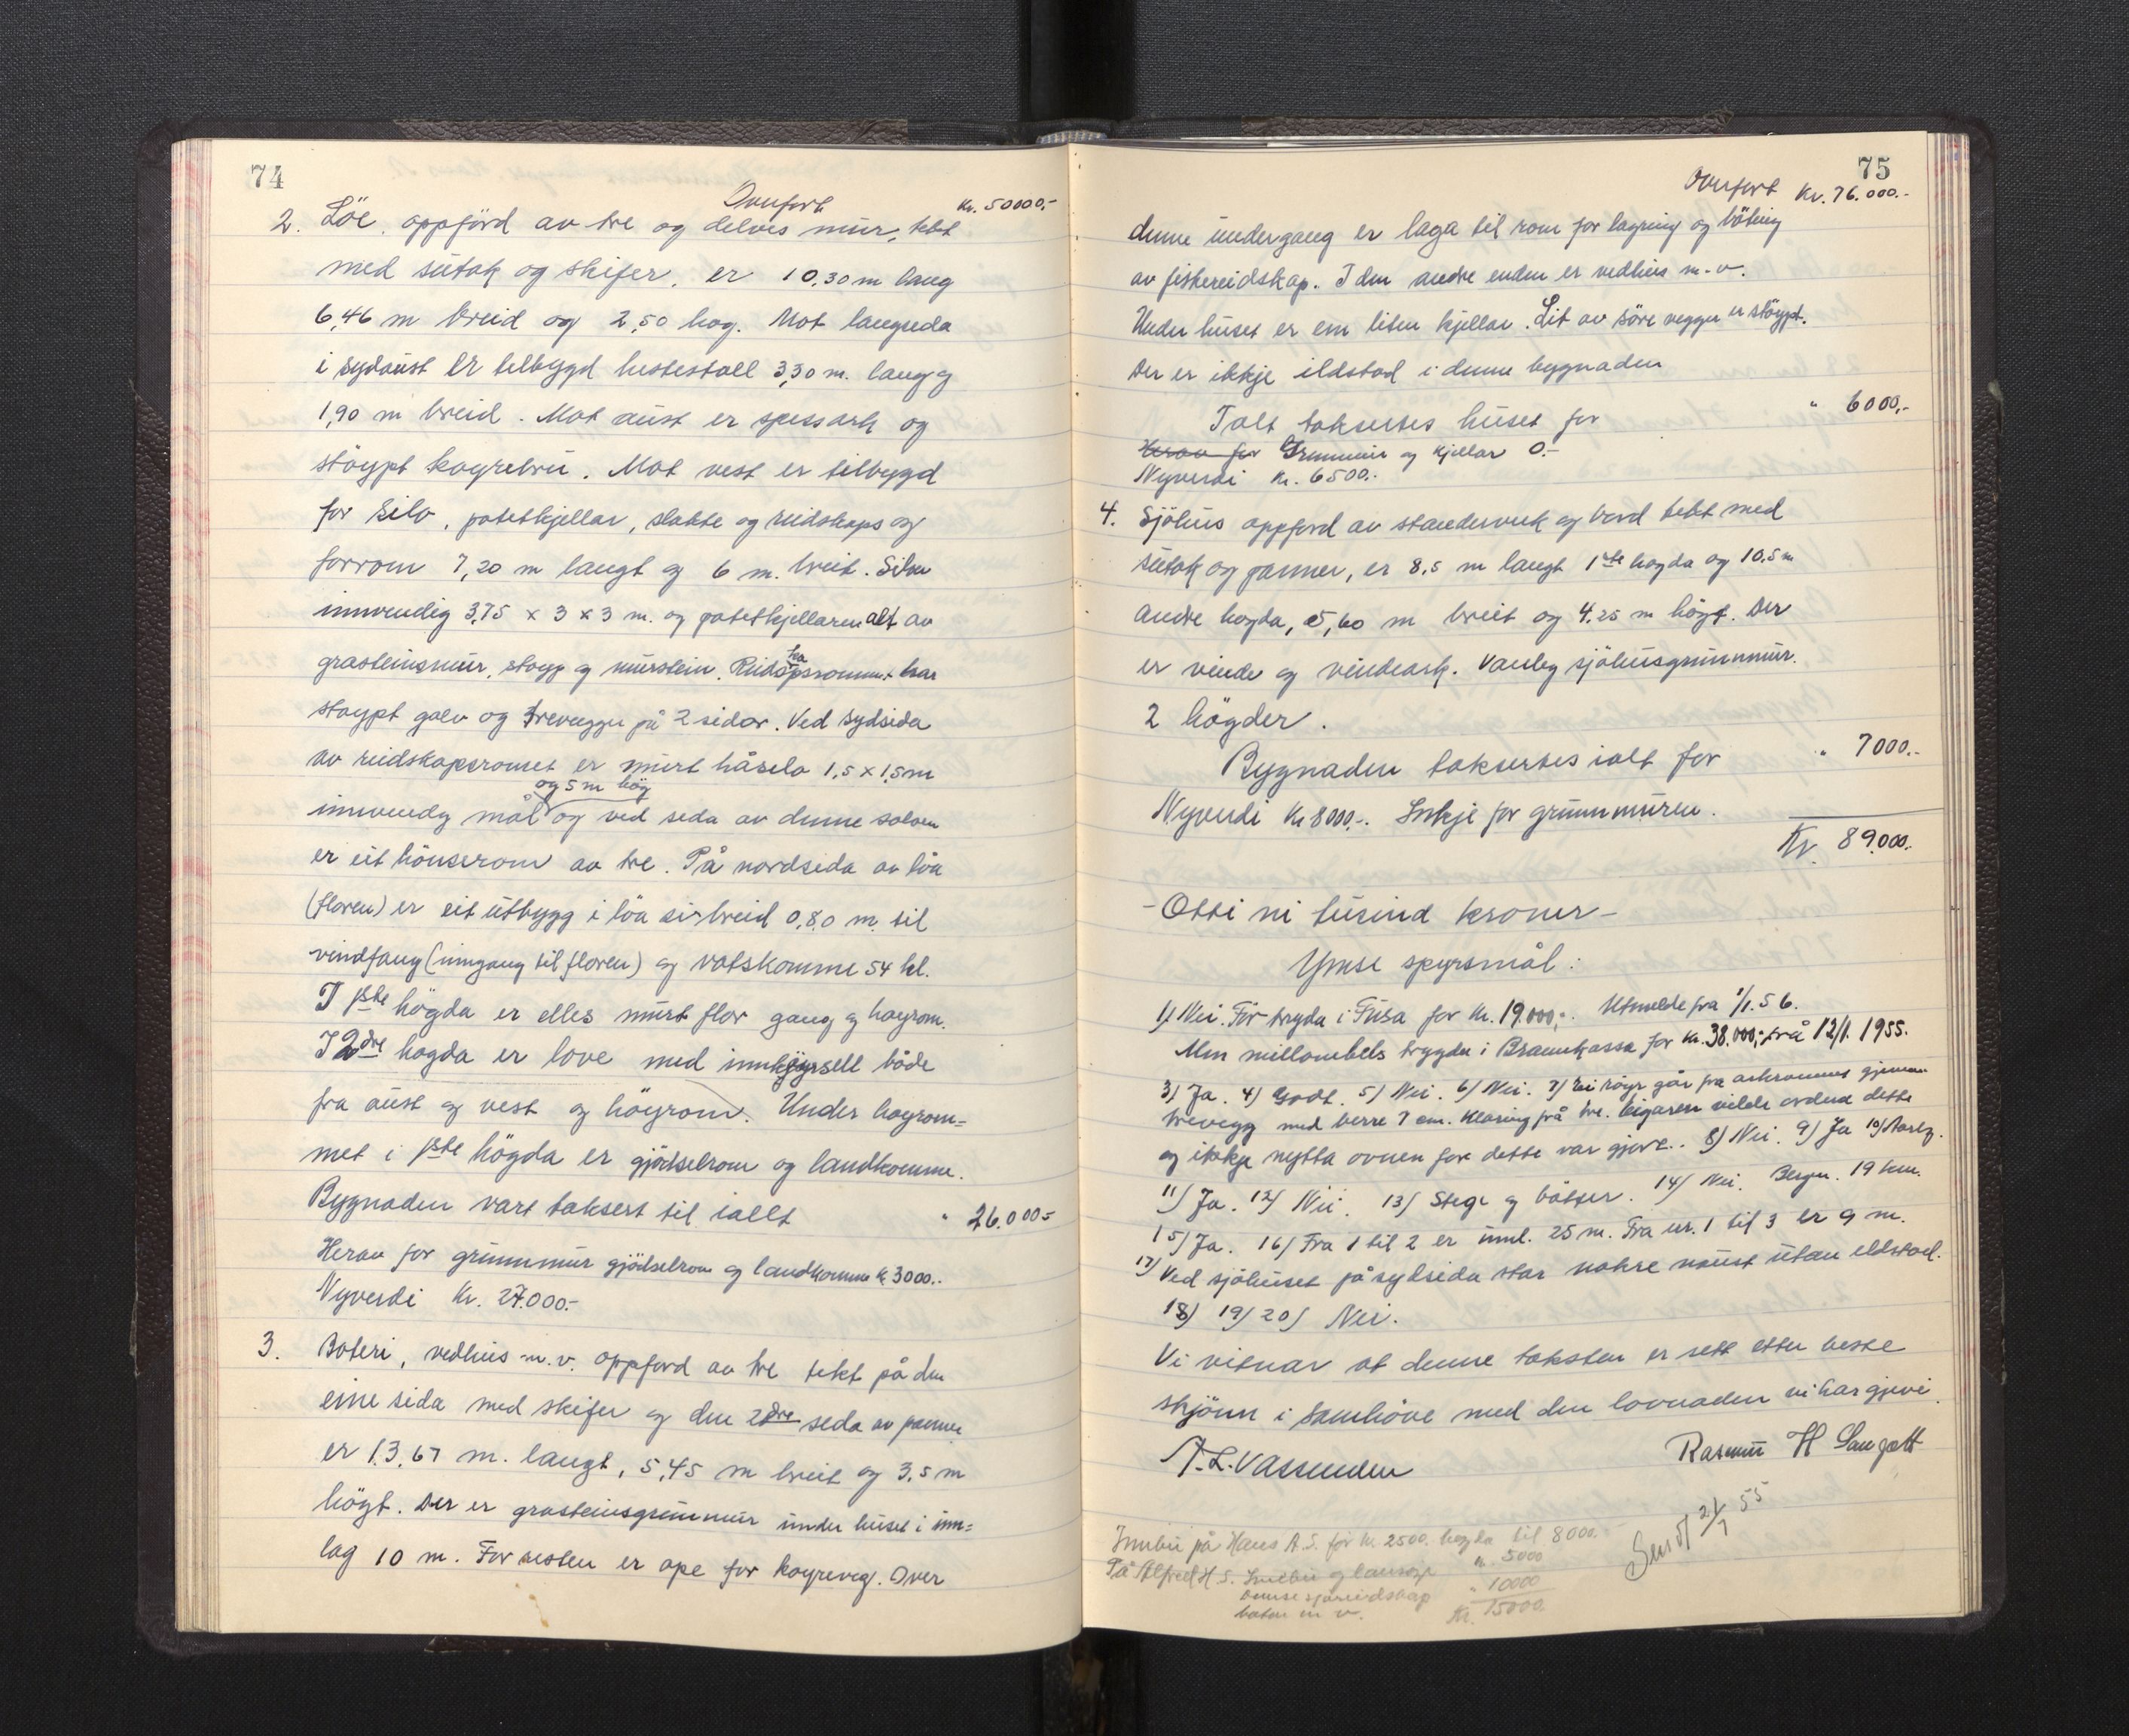 74
Overført Kr. 50000.-
2. Löe, oppförd av tre og delvis mur, tekt
med sutak og skifer, er 10,30 m lang
6,46 m breid og 2,50 høg. Mot langsida
i sydaust er tilbygd hestestall 3,30 m. lang og
1,90 m breid. Mot aust er og
støypt køyrebru. Mot vest er tilbygd
for silo, potetkjellar, slakte og reidskaps og
forrom 7,20 m langt og 6 m. breit. Siloen
innvendig 3,75 x 3 x 3 m. og potetkjellaren alt av
gråsteinsmur, støyp og murstein. Reidskapsrommet har
støypt golv og trevegger på 2 sidor. Ved sydsida
av reidskapsromet er murt håsilo 1,5 x 1,5 m
og 5 m høg
innvendig mål og ved sida av denne siloen
er eit hönserom av tre. På nordsida av löa
(floren) er eit utbygg i löa si breid 0,80 m. til
vindfang (inngang til floren) og vatskomme 54 hl.
I 1ste högda er elles murt flor gang og høyrom.
I 2dre høgda er løve med innkjørsell både
fra aust og vest og höyrom. Under høyrom=
met i 1ste högda er gjödselrom og landkomme.
Bygnaden vart taksert til i allt " 26.000.-
Herav for grunnmur gjödselrom og landkomme k 3000.-
Nyverdi Kr. 27.000.-
3. Bøteri, vedhus m.v. oppførd av tre tekt på den
eine sida med skifer og den 2dre sida av panner
er 13,67 m. langt, 5,45 m breit og 3,5 m
högt. Der er gråsteinsgrunnmur under huset i inn=
lag 10 m. For resten er ope for køyreveg. Over
75
Overført Kr. 76.000.-
denne undergang er laga til rom for lagring og böting
av fiskereidskap. I den andre enden er vedhus m.v.
Under huset er ein liten kjellar. Lit av söre veggen er støypt.
Der er ikkje ildstad i denne bygnaden
I alt taksertes huset for " 6000.-
Herav for Grunnmur og kjellar 0.-
Nyverdi Kr. 6500.-
4. Sjöhus oppførd av standerverk og bord tekt med
sutak og panner, er 8,5 m langt 1ste høgda og 10,5 m
andre høgda, 5,60 m breit og 4,25 m högt. Der
er vinde og vindeark. Vanleg sjöhusgrunnmur.
2 högder.
Bygnaden taksertes ialt for " 7000.-
Nyverdi Kr 8000.-. Inkje for grunnmuren.
Kr. 89.000.-
- Otti ni tusind kroner -
Ymse spyrsmål:
1) Nei. Før trygda i Fusa for Kr. 19.000,-. Utmelde fra 1/1. 56.
Men millombels trygda i Brannkassa for Kr. 38.000,- frå 12/1. 1955.
3) Ja. 4) Godt. 5) Nei. 6) Nei. 7) Ei røyr går fra arkrommet gjennom
trevegg med berre 7 cm. klaring frå tre. Eigaren vilde ordna dette
og ikkje nytta ovnen før dette var gjort. 8) Nei. 9) Ja 10)
11) Ja. 12) Nei. 13) Stege og bötter. 14) Nei. Bergen. 19 km.
15) Ja. 16) Fra 1 til 2 er innl. 25 m. Fra nr. 1 til 3 er 9 m.
17) Ved sjöhuset på sydsida står nokre naust utan eldstad.
18) 19) 20) Nei.
Vi vitnar at denne taksten er sett etter beste
skjönn i samhöve med den lovnaden vi har gjevi.
A. L. Vassenden Rasmus H
Sendt 21/1 55
Innbu på Hans A.S. for kr. 2500. høgda til 8000.-
På Alfred H S. Innbu og lausøyr " 5000
sjøreidskap " 10000
båtar m v. Kr. 15000.